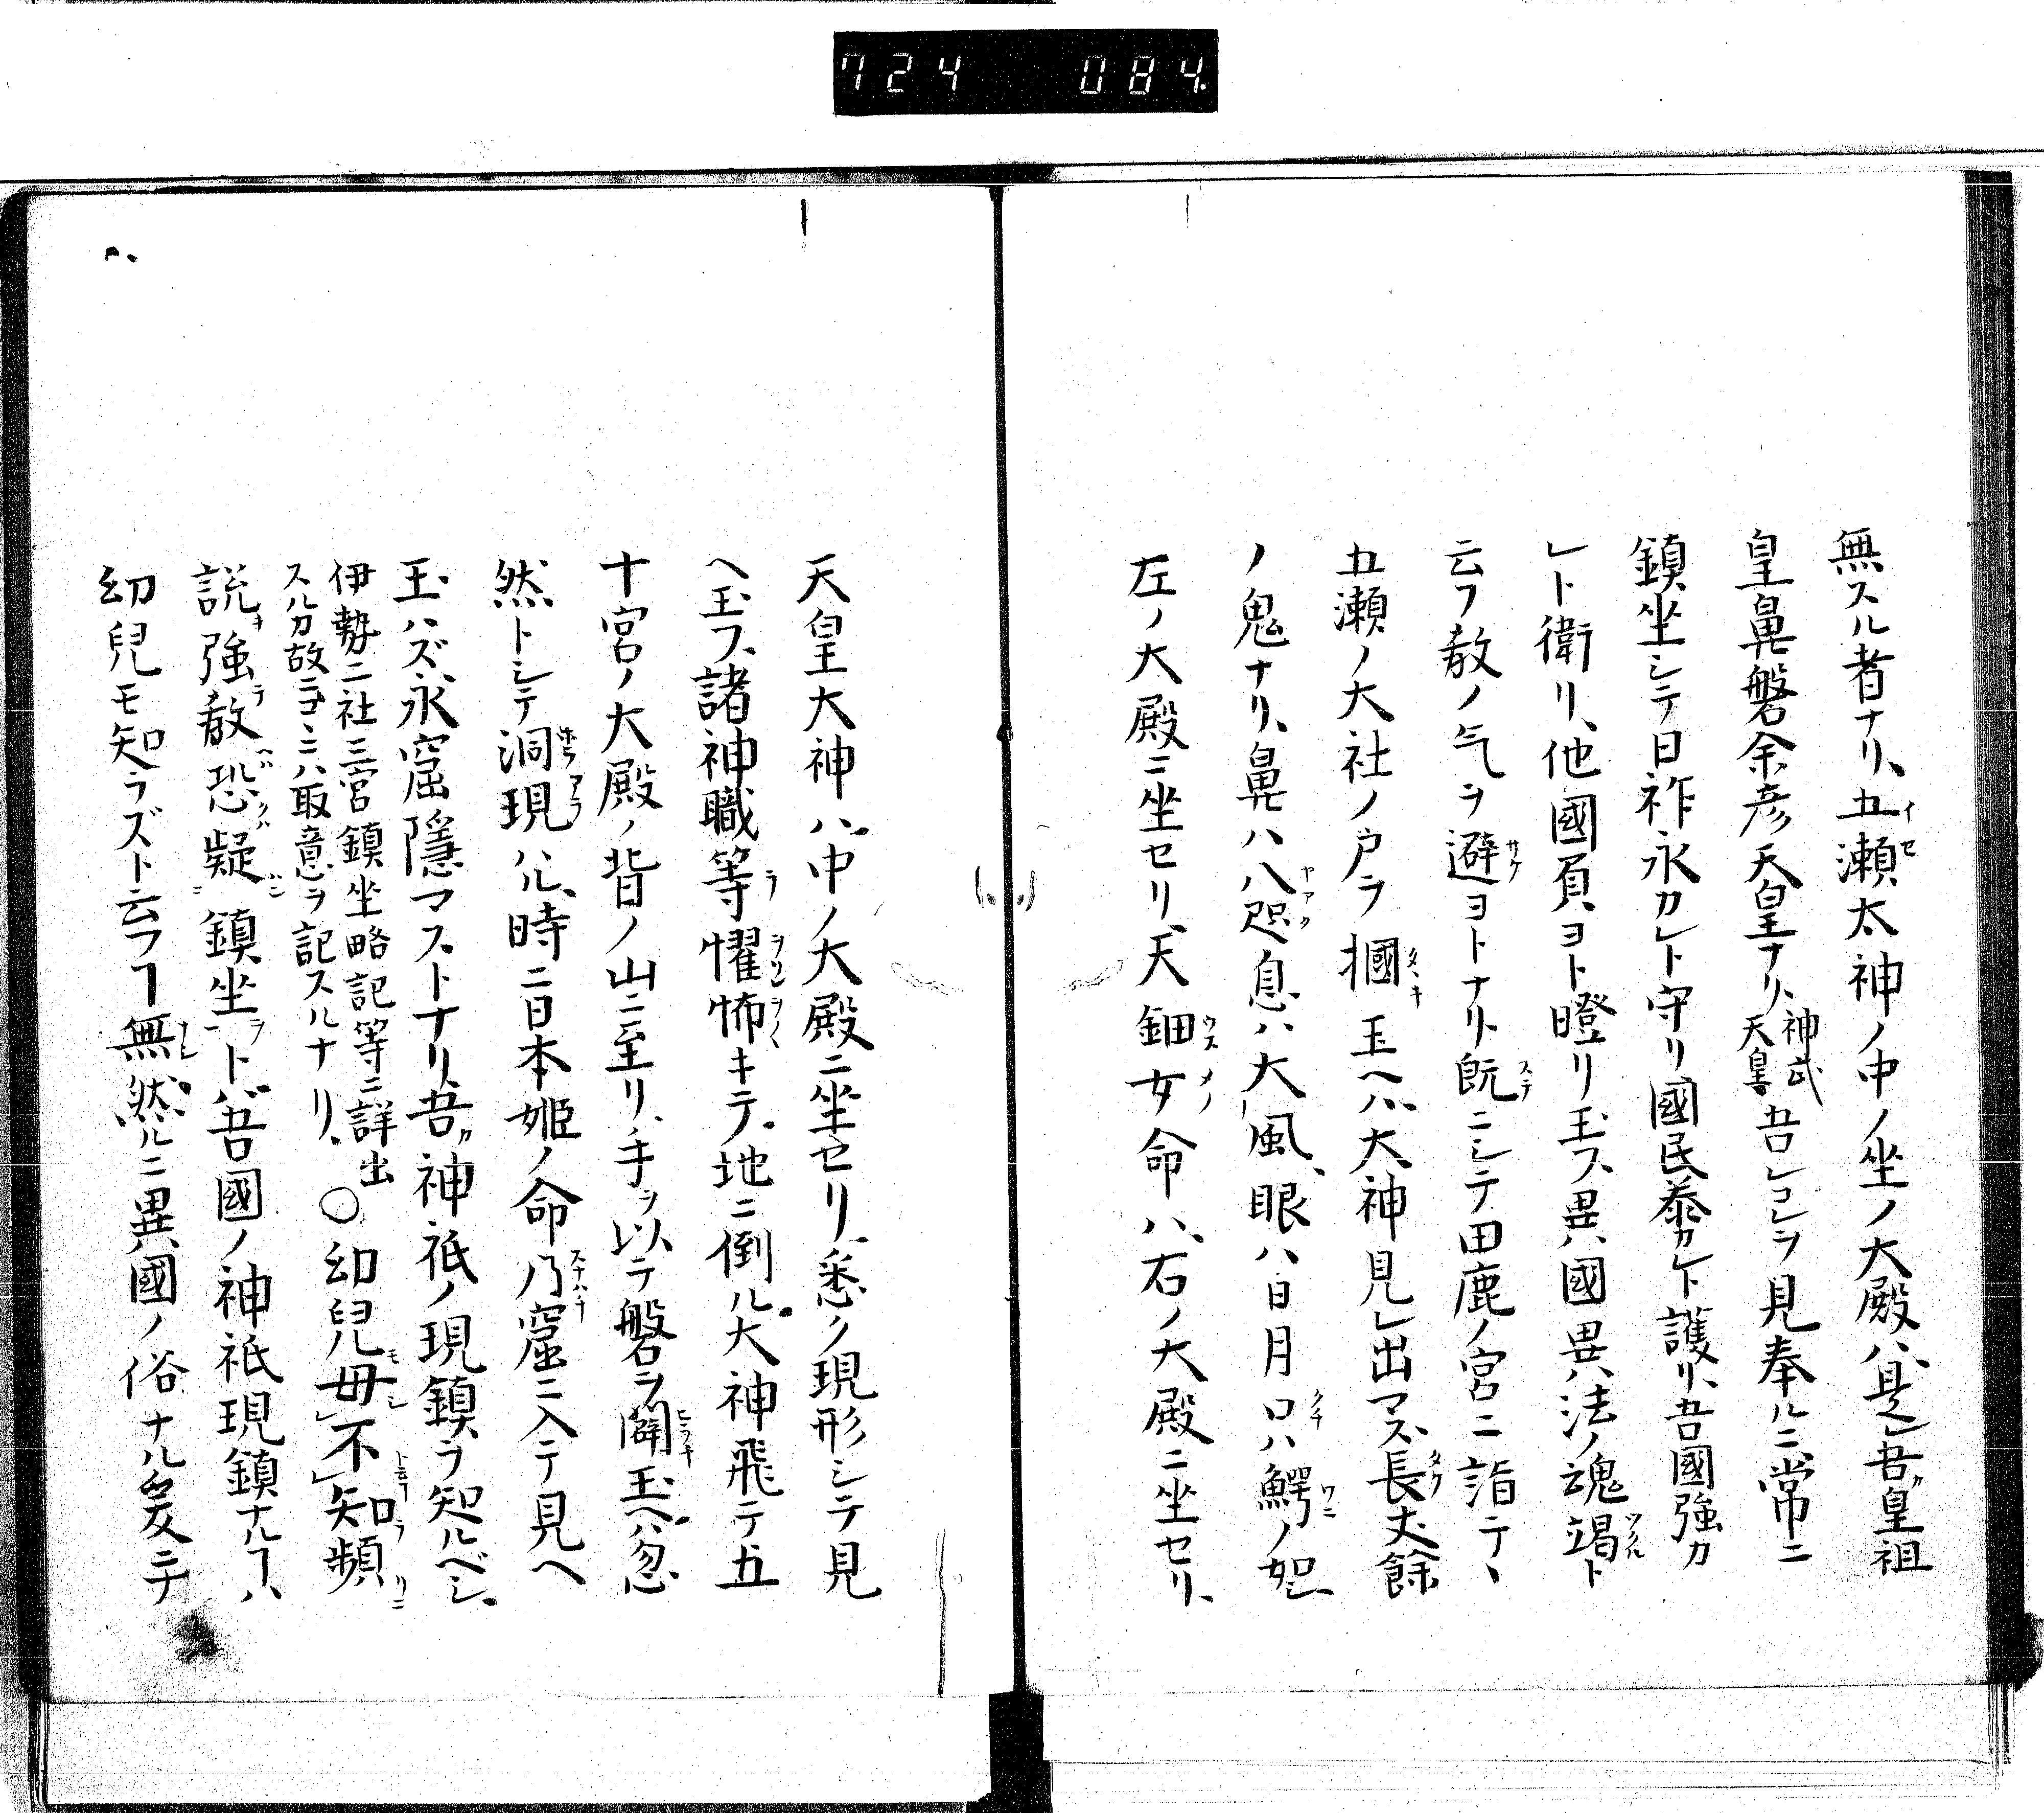 724 084.
無スル者ナリ、五瀬太神ノ中ノ坐ノ大殿ハ、是レ吾ガ皇祖
皇鼻磐余彦天皇ナリ、神武天皇吾レコレヲ見奉ルニ、常ニ
鎮坐シテ日祚永カレト守リ國民泰カレト護リ、吾國強カ
レト衛リ、他國負ヨト瞪リ玉フ、異國異法ノ魂竭ト
云フ教ノ气ヲ避ヨトナリ、既ニシテ田鹿ノ宮ニ詣テ、
五瀬ノ大社ノ戸ヲ摑玉ヘバ、大神見レ出マス、長丈餘
ノ鬼ナリ、鼻ハ八咫息ハ大風、眼ハ日月口ハ鰐ノ如シ
左ノ大殿ニ坐セリ、天鈿女命ハ、右ノ大殿ニ坐セリ、
天皇大神ハ、中ノ大殿ニ坐セリ、悉ク現形シテ見
ヘ玉フ、諸神職等懼怖キテ、地ニ倒ル、大神飛テ五
十宮ノ大殿ノ背ノ山ニ至リ、手ヲ以テ磐ヲ闢玉ヘバ、忽
然トシテ洞現ハル、時ニ日本姬ノ命乃窟ニ入テ見ヘ
玉ハズ、永窟隱マストナリ、吾カ神祇ノ現鎮ヲ知ルベシ、
伊勢二社三宮鎮坐略記等ニ詳出
スルカ故ニヨニハ取意ヲ記スルナリ、〇幼兒毋不知頻
説強教恐疑鎮坐ヲトバ、吾國ノ神祇現鎮ナルヿハ
幼兒モ知ラズト云フヿ無、然ルニ異國ノ俗ナル故ニテ